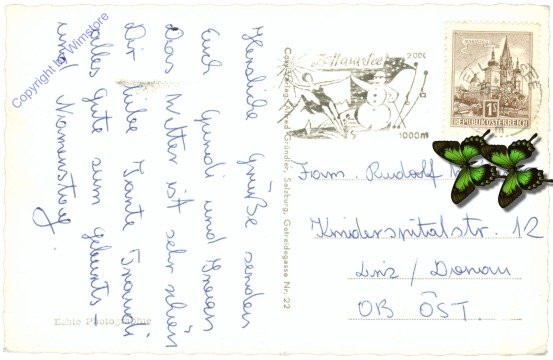 Herzliche Grüße senden
Euch Gundi und
Das Wetter ist sehr schön
Dir liebe Tante Traudi
alles gute zum geburts
und Namenstag.
Echte Photographie
Salzburg, Getreidegasse Nr. 22
Zell am See
2000
1000m
1S
REPUBLIK ÖSTERREICH
Fam. Rudolf
Kinderspitalstr. 12
Linz / Donau
OB ÖST.
Copyright by Wimstore